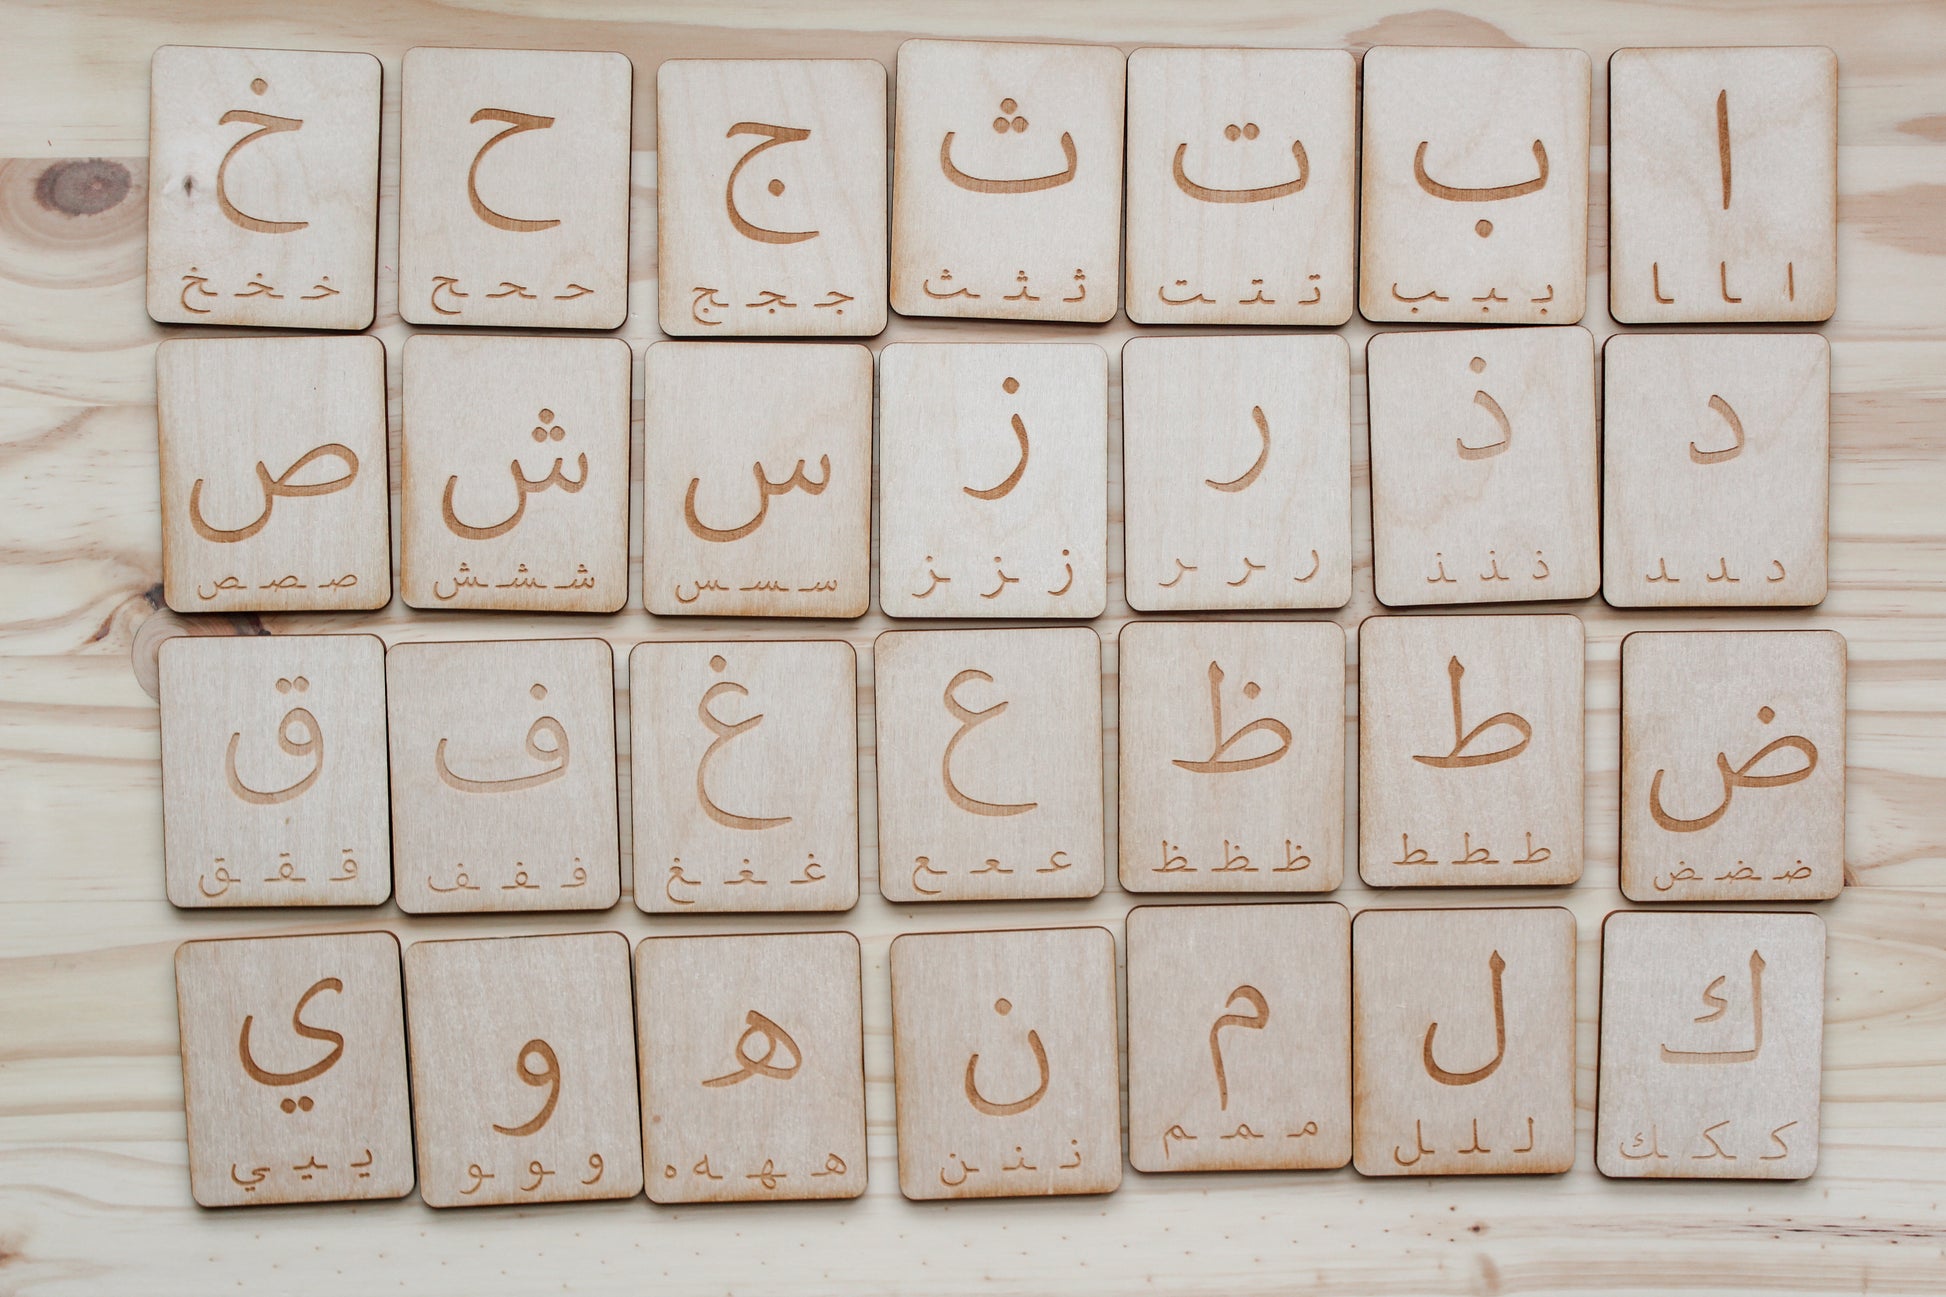 ا ب ت ث ج ح خ
ا ـا ـا بـ ـبـ ـب تـ ـتـ ـت ثـ ـثـ ـث جـ ـجـ ـج حـ ـحـ ـح خـ ـخـ ـخ
د ذ ر ز س ش ص
د ـد ـد ذ ـذ ـذ ر ـر ـر ز ـز ـز سـ ـسـ ـس شـ ـشـ ـش صـ ـصـ ـص
ض ط ظ ع غ ف ق
ضـ ـضـ ـض طـ ـطـ ـط ظـ ـظـ ـظ عـ ـعـ ـع غـ ـغـ ـغ فـ ـفـ ـف قـ ـقـ ـق
ك ل م ن ه و ي
كـ ـكـ ـك لـ ـلـ ـل مـ ـمـ ـم نـ ـنـ ـن هـ ـهـ ـه ه و ـو ـو يـ ـيـ ـي